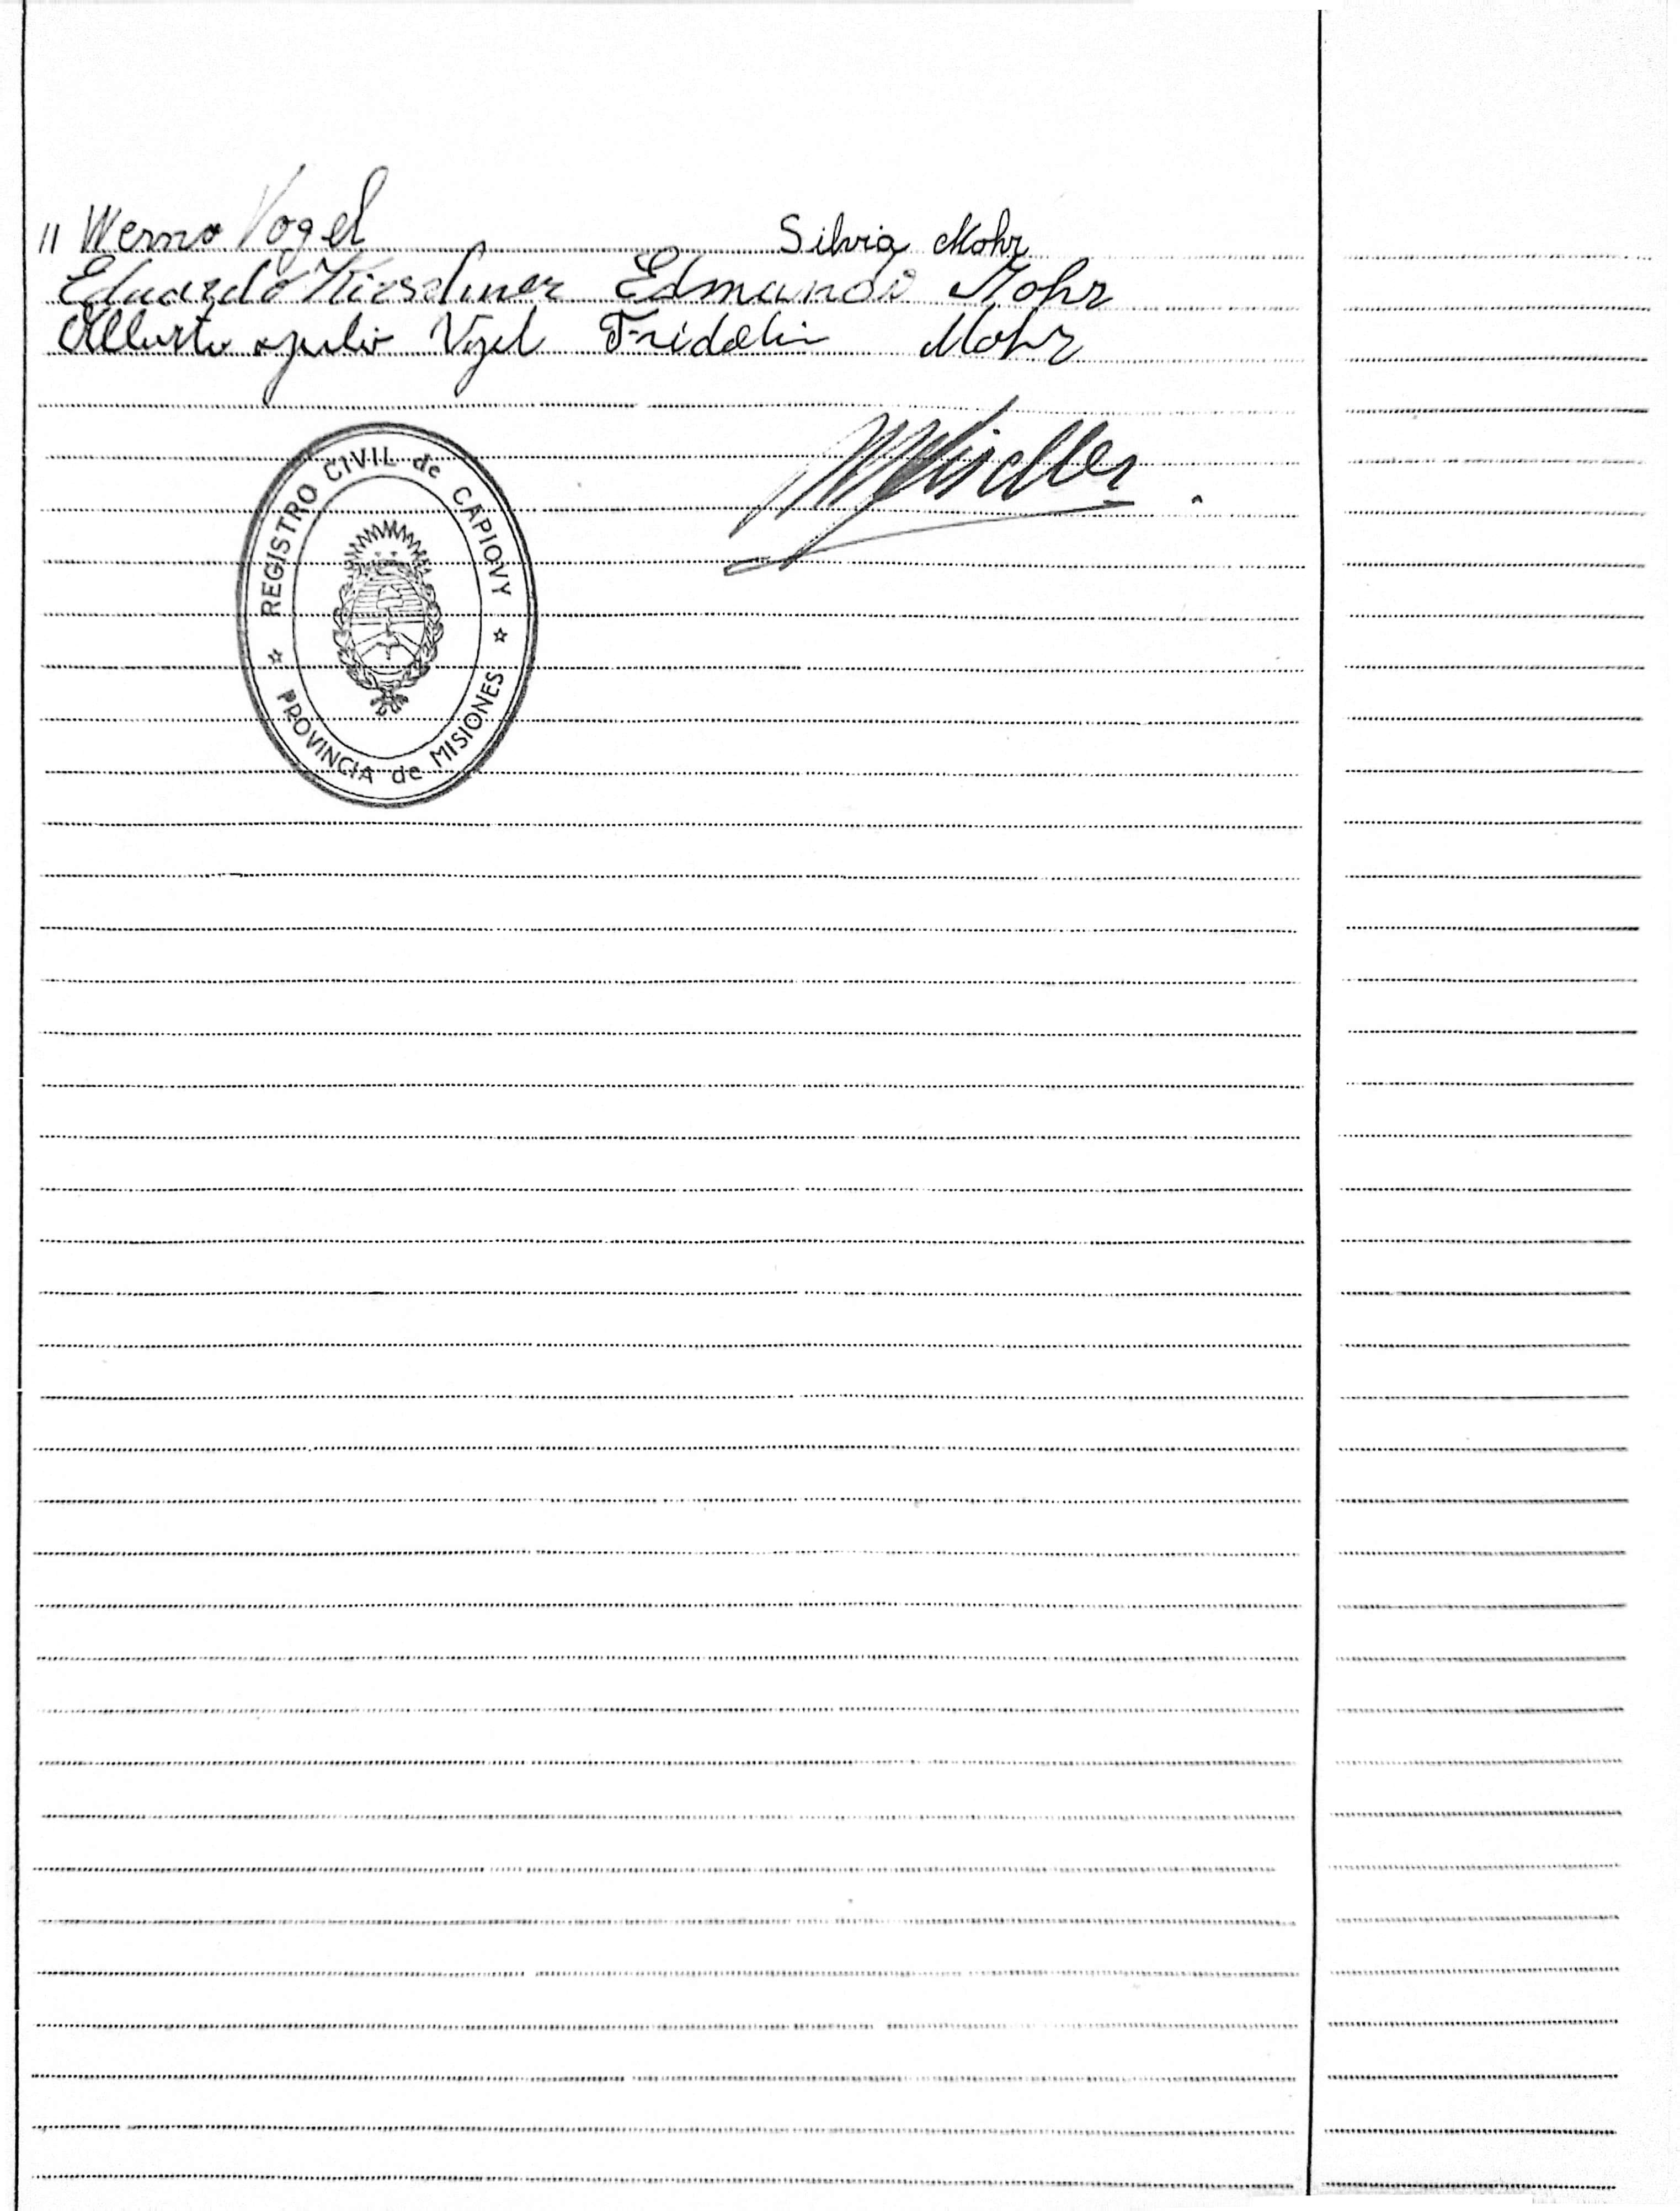 " Werno Vogel Silvia Mohr
Eduardo Kirschner Edmundo Mohr
Alberto Julio Vogel Fridolin Mohr
REGISTRO CIVIL de CAPIOVY
PROVINCIA de MISIONES